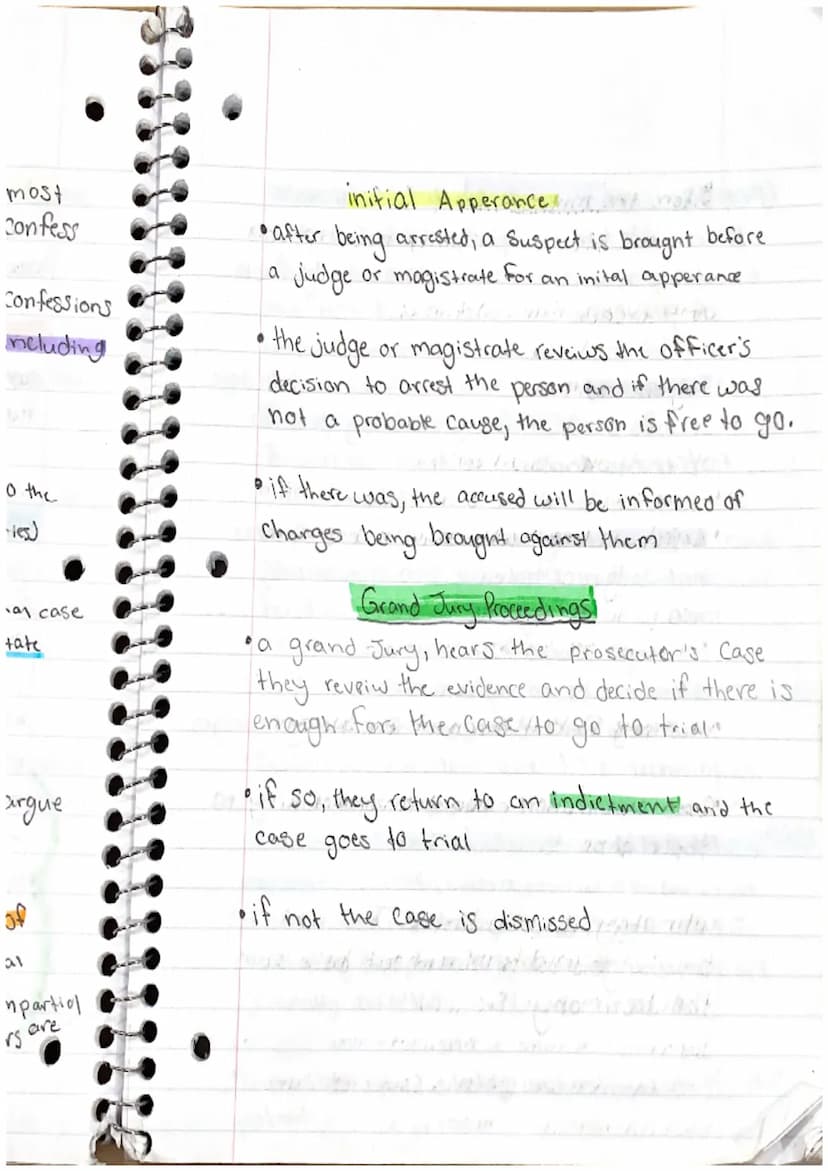 most
confess
confessions
ncluding
o the
ies)
case
tate
argue
of
al
npartial
rs are
initial Apperance
•after being arrested, a suspect is brought before
a judge or magistrate for an inital apperance
•the judge or magistrate reveiws the officer's
decision to arrest the person and if there was
not a probable cause, the person is free to go.
•if there was, the accused will be informed of
charges being brought against them
Grand Jury Proceedings
•a grand Jury, hears the prosecutor's case
they reveiw the evidence and decide if there is
enough for the case to go to trial
•if so, they return to an indictment and the
case goes to trial
•if not the case is dismissed